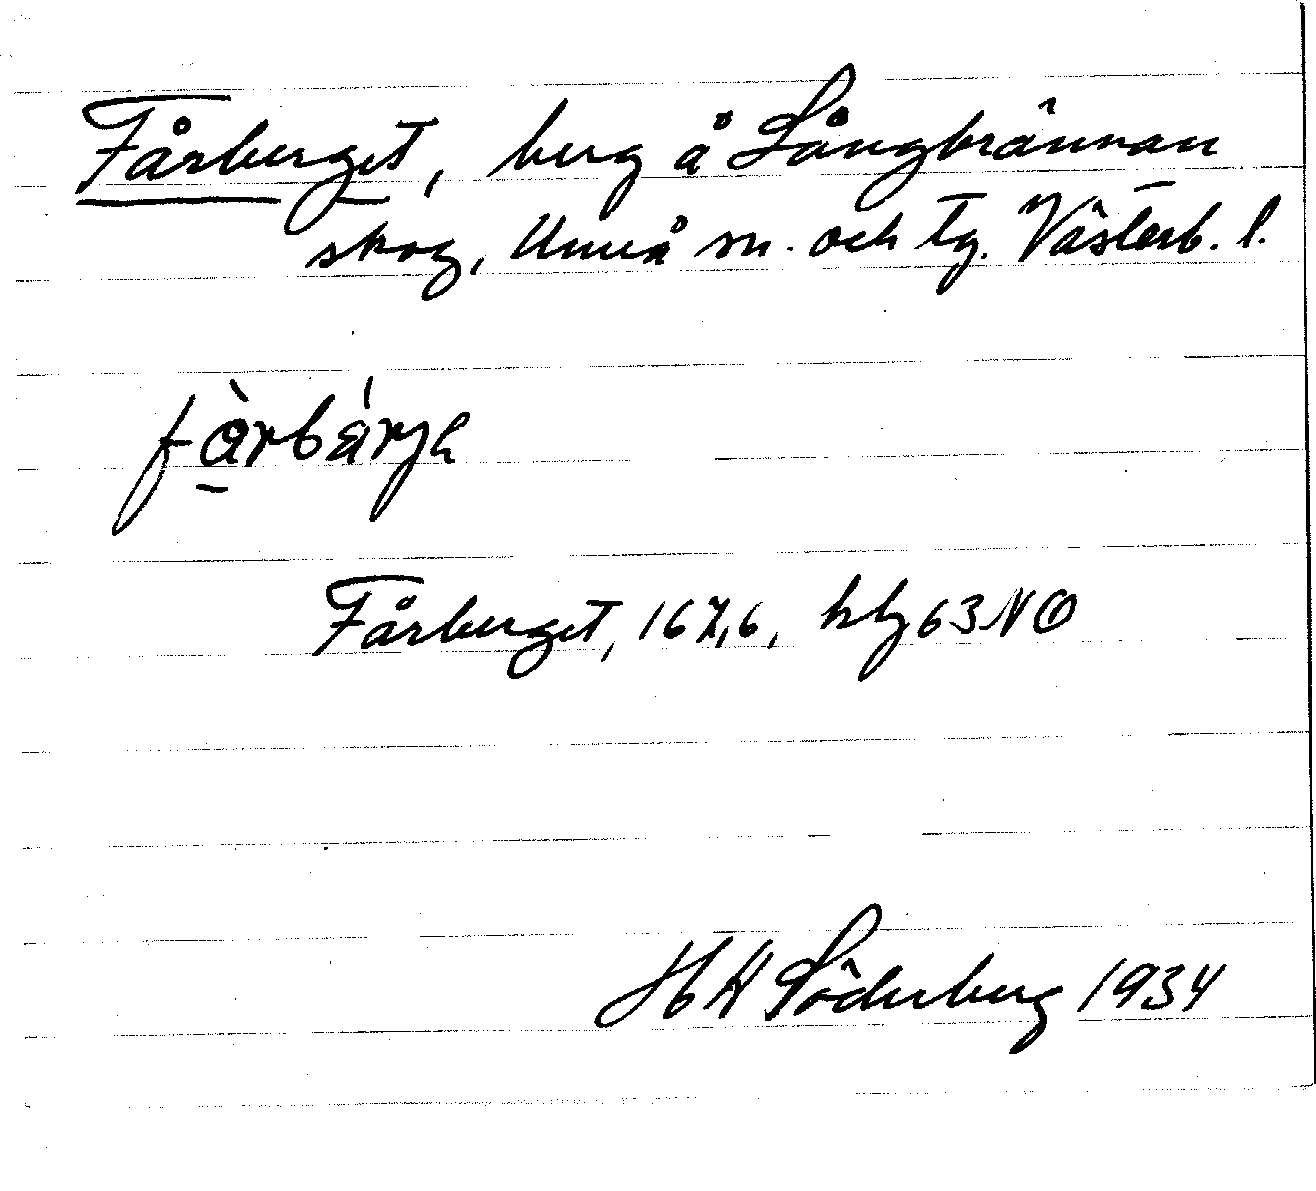 Fårberget, berg å Långbrännan
skog, Umeå sn. och tg. Västerb. l.
fàrbárjə
Fårberget, 167,6, kbl 63 NO
H Söderberg 1934